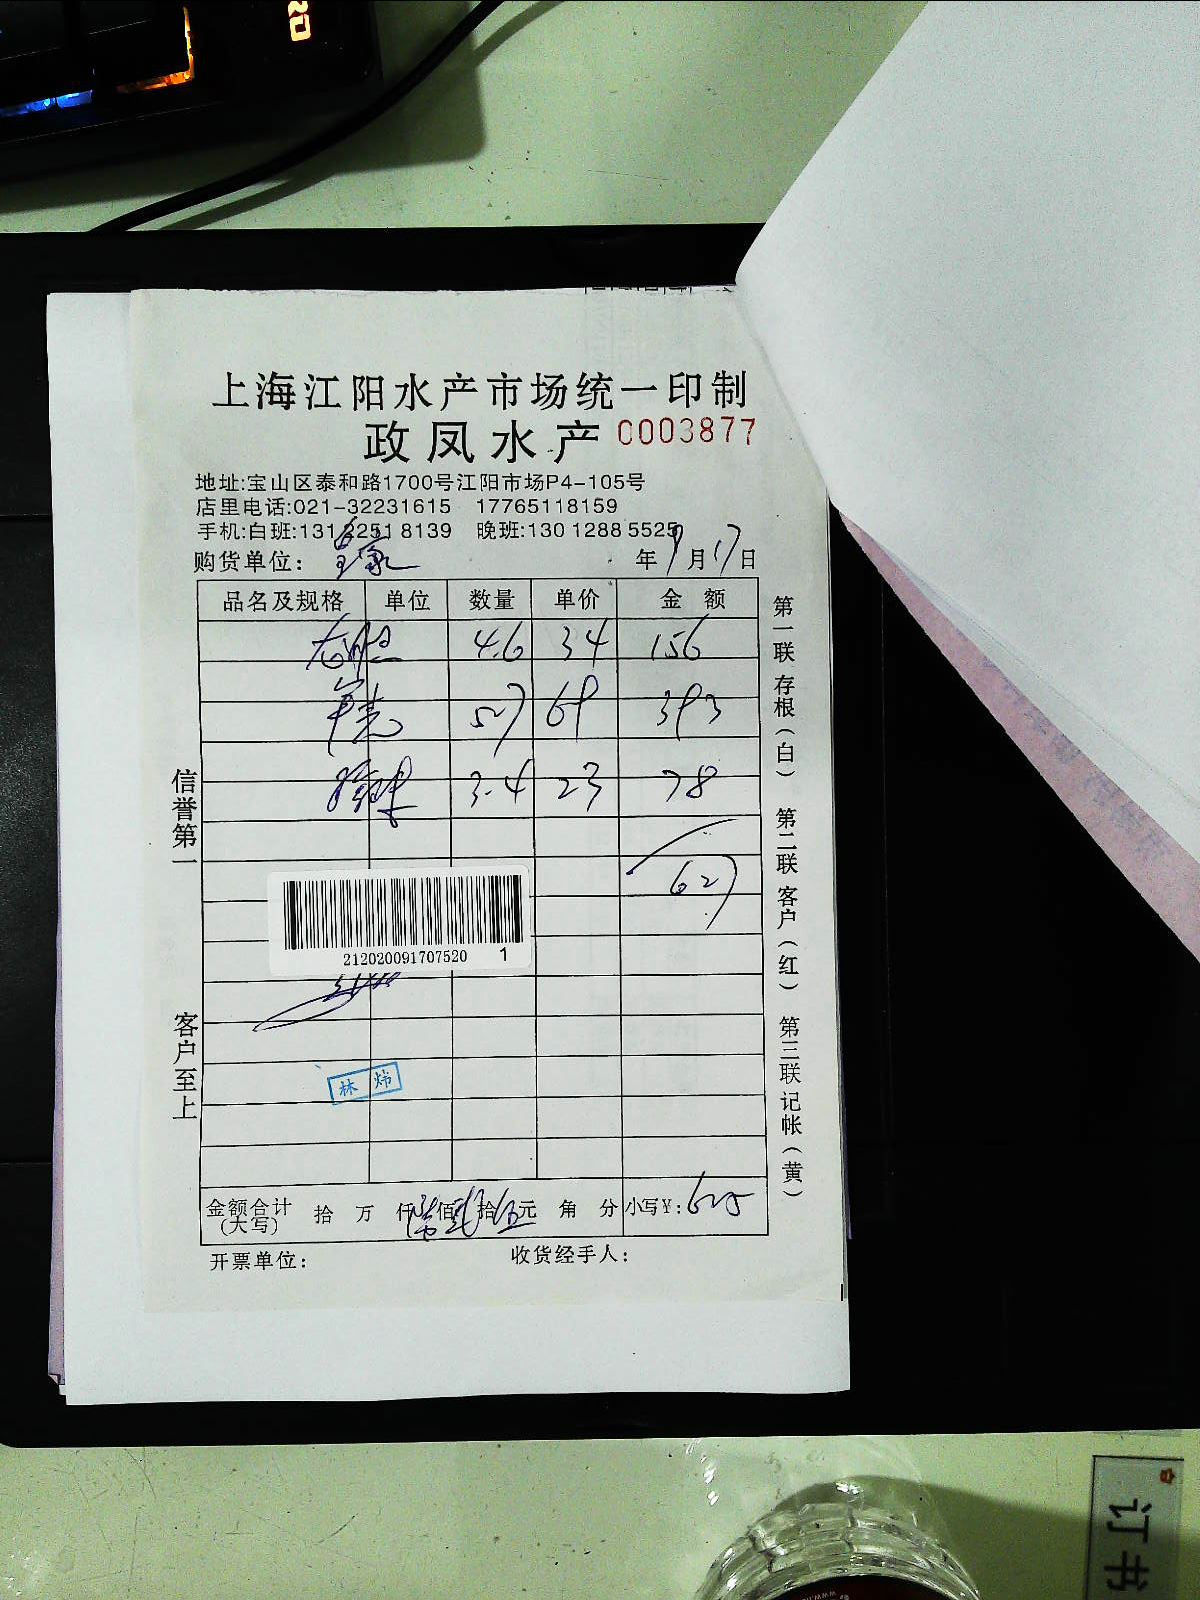 上海江阳水产市场统一印制
政凤水产 0003877
地址:宝山区泰和路1700号江阳市场P4-105号
店里电话:021-32231615 17765118159
手机:白班:131 2251 8139 晚班:130 1288 5525
购货单位: 年 9 月 17 日
品名及规格 单位 数量 单价 金额
4.6 34 156
5.7 69 393
3.4 23 78
627
212020091707520 1
林炜
金额合计(大写) 拾 万 仟 陆 佰 贰 拾 伍 元 角 分 小写¥: 625
开票单位: 收货经手人:
信誉第一
客户至上
第一联 存根(白)
第二联 客户(红)
第三联 记帐(黄)
订书